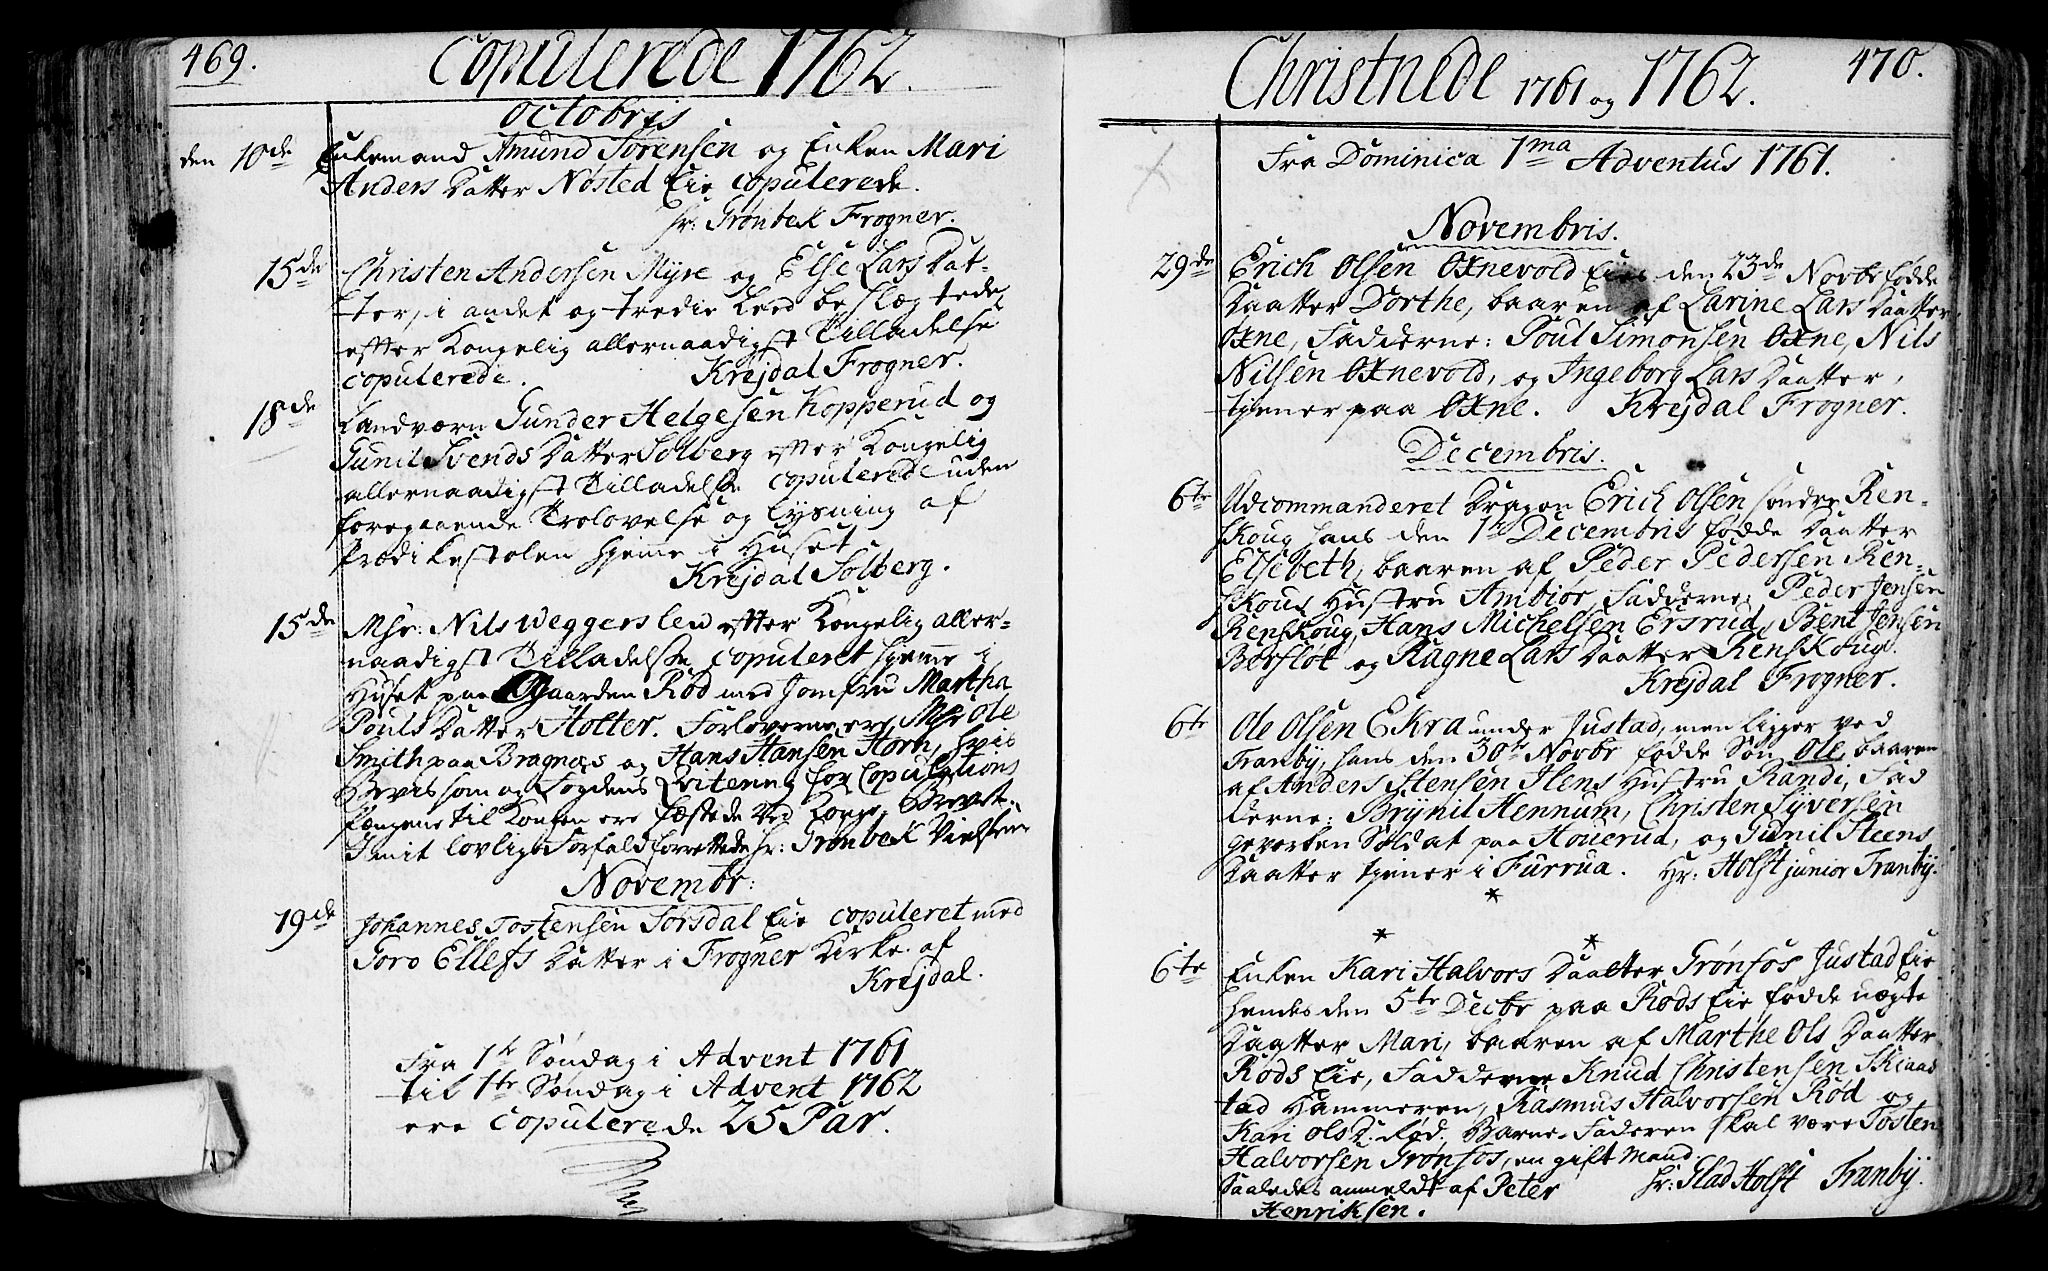 469.
Copulerede 1762.
Octobris
den 10de Enkemand Amund Sørensen og Enken Mari
Anders Datter Nøsted Eie copulerede.
Hr: Grønbek Frogner.
15de Christen Andersen Myre og Else Lars Dat-
ter, i andet og tredie Leed beslægtede
efter Kongelig allernaadigst Tilladelse
copulerede. Krejdal Frogner.
18de Landværn Gunder Helgesen Kopperud og
Gunil Svends Datter Solberg efter Kongelig
allernaadigst Tilladelse copulerede uden
foregaaende Trolovelse og Lysning af
Prædikestolen hjemme i Huset
Krejdal Solberg.
15de Msr: Nils Weggersløw efter Kongelig aller-
naadigst Tilladelse copuleret hjemme i
Huset paa Gaarden Rød med Jomfru Martha
Pouls Datter Holter. Forloverne ere Msr Ole
Smith paa Bragnæs og Hans Hansen Horn, hvis
Bevis som og Fogdens Qvitering for Copulations
Pengene til Kongen ere fæstede ved Konge Brevet.
I mit lovlige Forfald forrettede Hr: Grønbek Vielsen
Novembr:
19de Johannes Tostensen Sørsdal Eie copuleret med
Goro Ellefs Datter i Frogner Kirke af
Krejdal.
Fra 1te Søndag i Advent 1761
til 1te Søndag i Advent 1762
ere copulerede 25 Par.
470.
Christnede 1761 og 1762.
Fra Dominica 1ma Adventus 1761.
Novembris.
29de Erich Olsen Oxnevold Eies den 23de Novbr fødde
Daatter Dorthe, baaren af Karine Lars Daatter
Oxne, Fadderne: Poul Simonsen Oxne, Nils
Nilsen Oxnevold, og Ingeborg Lars Daatter,
tjener paa Oxne. Krejdal Frogner.
Decembris.
6te Udcommanderet Dragon Erich Olsen søndre Ren-
skoug hans den 1te Decembris fødde Daatter
Elsebeth, baaren af Peder Pedersen Ren-
skougs Hustru Ambiør, Fadderne: Peder Jensen
Renskoug, Hans Michelsen Ersrud, Bent Jensen
Børsløt og Ragne Lars Daatter Renskoug.
Krejdal Frogner.
6te Ole Olsen Ekra under Justad, men ligger ved
Tranby, hans den 30te Novbr fødde Søn Ole, baaren
af Anders Stensen Ilens Hustru Randi, Fad
derne: Brynil Hennum, Christen Syversen
geworben Soldat paa Houerud, og Gunil Steens
Daatter tjener i Furrua. Hr: Holst junior Tranby.
*
* *
6te Enken Kari Halvors Daatter Grønsøs Justad Eie
hendes den 5te Decbr paa Røds Eie fødde uægte
Daatter Mari, baaren af Marthe Ols Daatter
Røds Eie, Fadderne Knud Christensen Skiaas
tad Hammeren, Rasmus Halvorsen Rød og
Kari Ols D: Rød. Barne-Faderen skal være Tosten
Halvorsen Grønsøs, en gift Mand.
Saaledes anmeldt af Peter Hr: Glad Holst Tranby.
Henriksen.